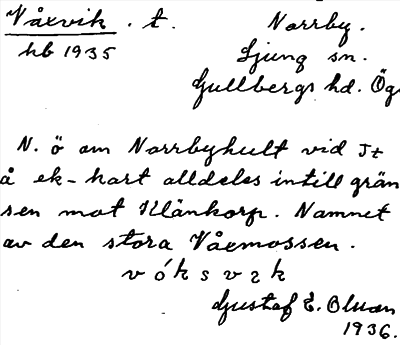 Våxvik . t. Norrby.
hb 1935 Ljung sn.
Gullbergs hd. Ög
N. ö om Norrbyhult vid St
å ek-kart alldeles intill grän
sen mot Klänkorp. Namnet
av den stora Våxmossen.
v ó k s v ɪ k
Gustaf E. Olsson
1936.